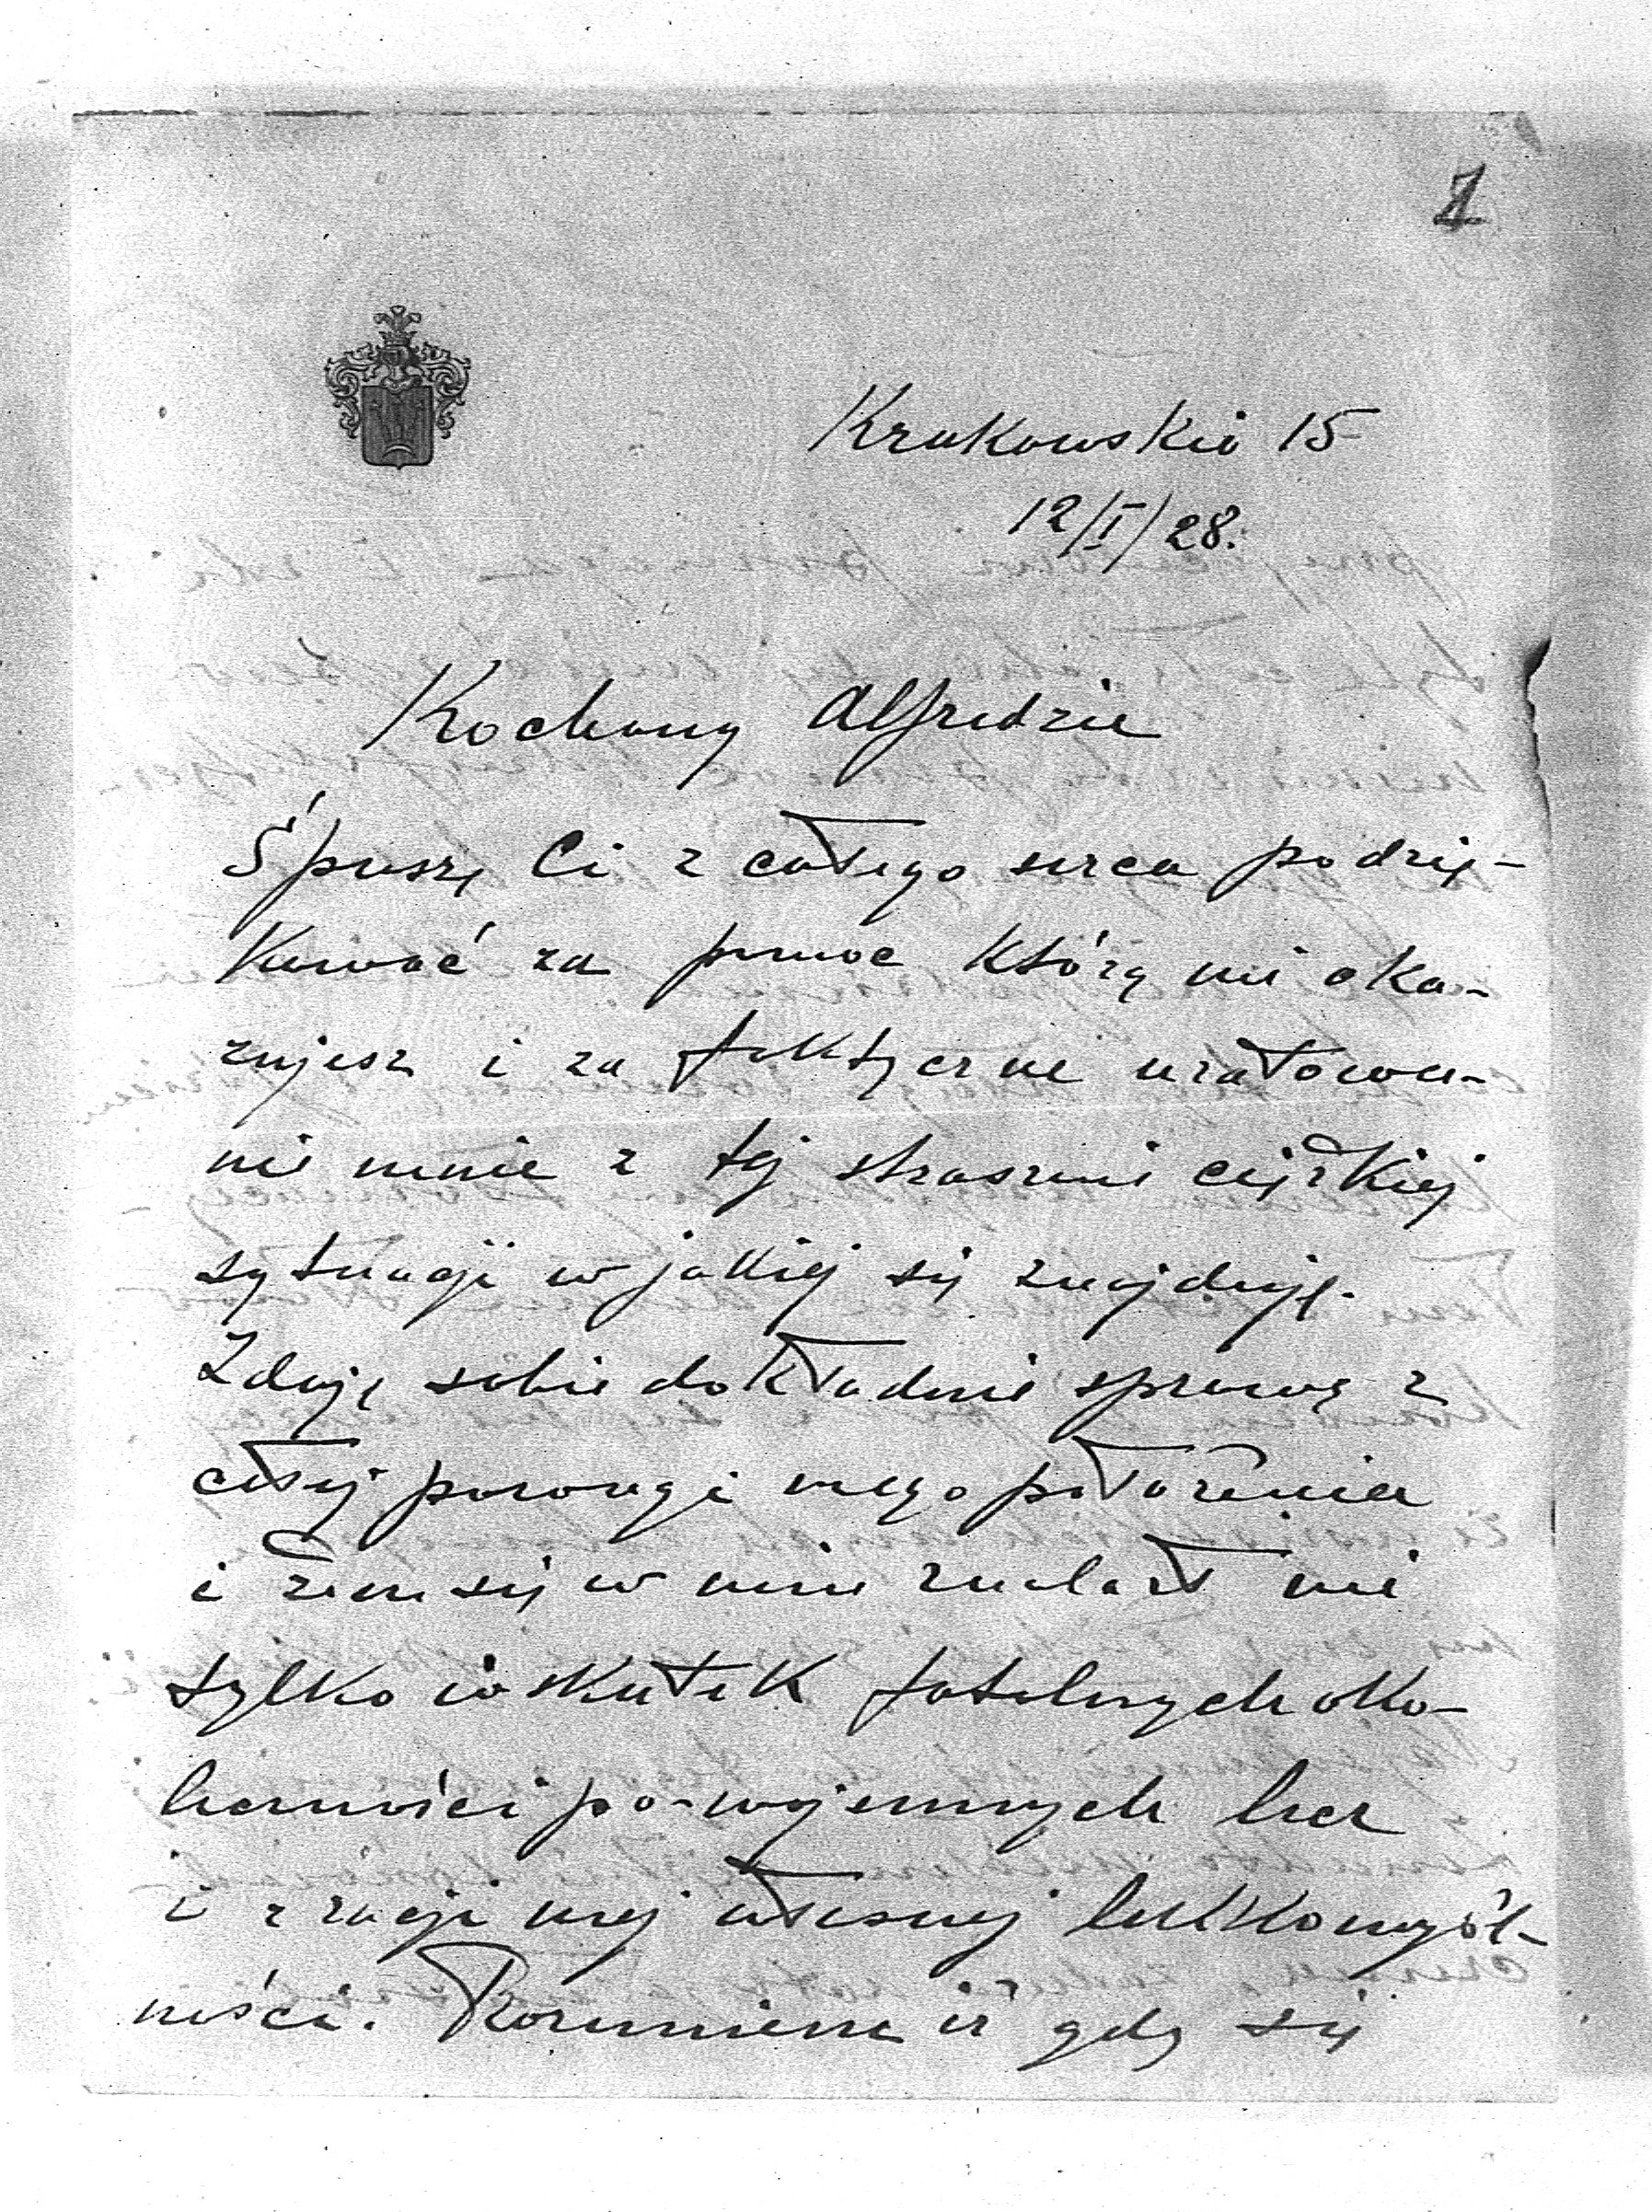 1
Krakowskie 15
12/I/28.
Kochany Alfredzie
Śpieszę Ci z całego serca podzię-
kować za pomoc którą mi oka-
zujesz i za faktyczne uratowa-
nie mnie z tej strasznie ciężkiej
sytuacji w jakiej się znajduję.
Zdaję sobie dokładnie sprawę z
całej powagi mego położenia
i żem się w nim znalazł nie
tylko wskutek fatalnych oko-
liczności po-wojennych lecz
i z racji mej własnej lekkomyśl-
ności. Rozumiem iż gdy się